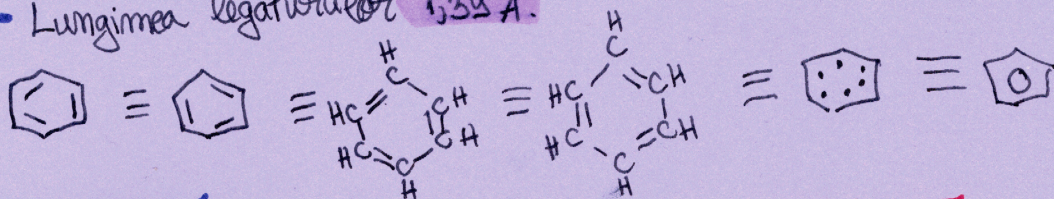 • Lungimea legăturilor 1,39 Å.
≡ ≡ ≡ ≡ ≡
H H
C C
HC CH HC CH
HC C H HC CH
C C
H H